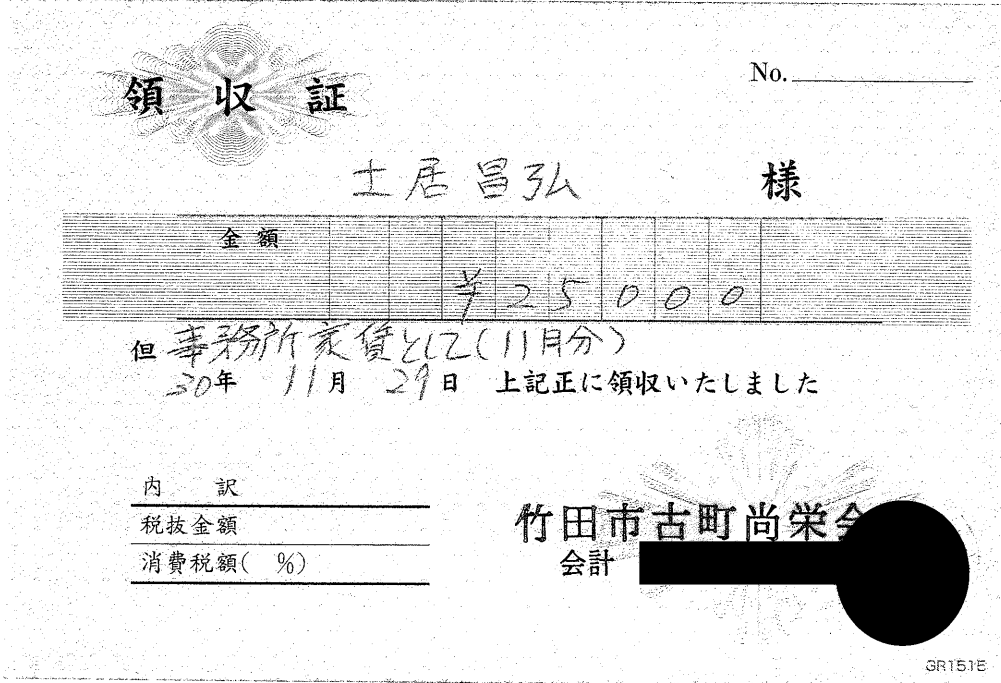 領収証
No.
土居昌弘 様
金額
¥25000
但 事務所家賃として(11月分)
30年 11月 29日 上記正に領収いたしました
内 訳
税抜金額
消費税額( %)
竹田市古町尚栄会
会計
GR1515